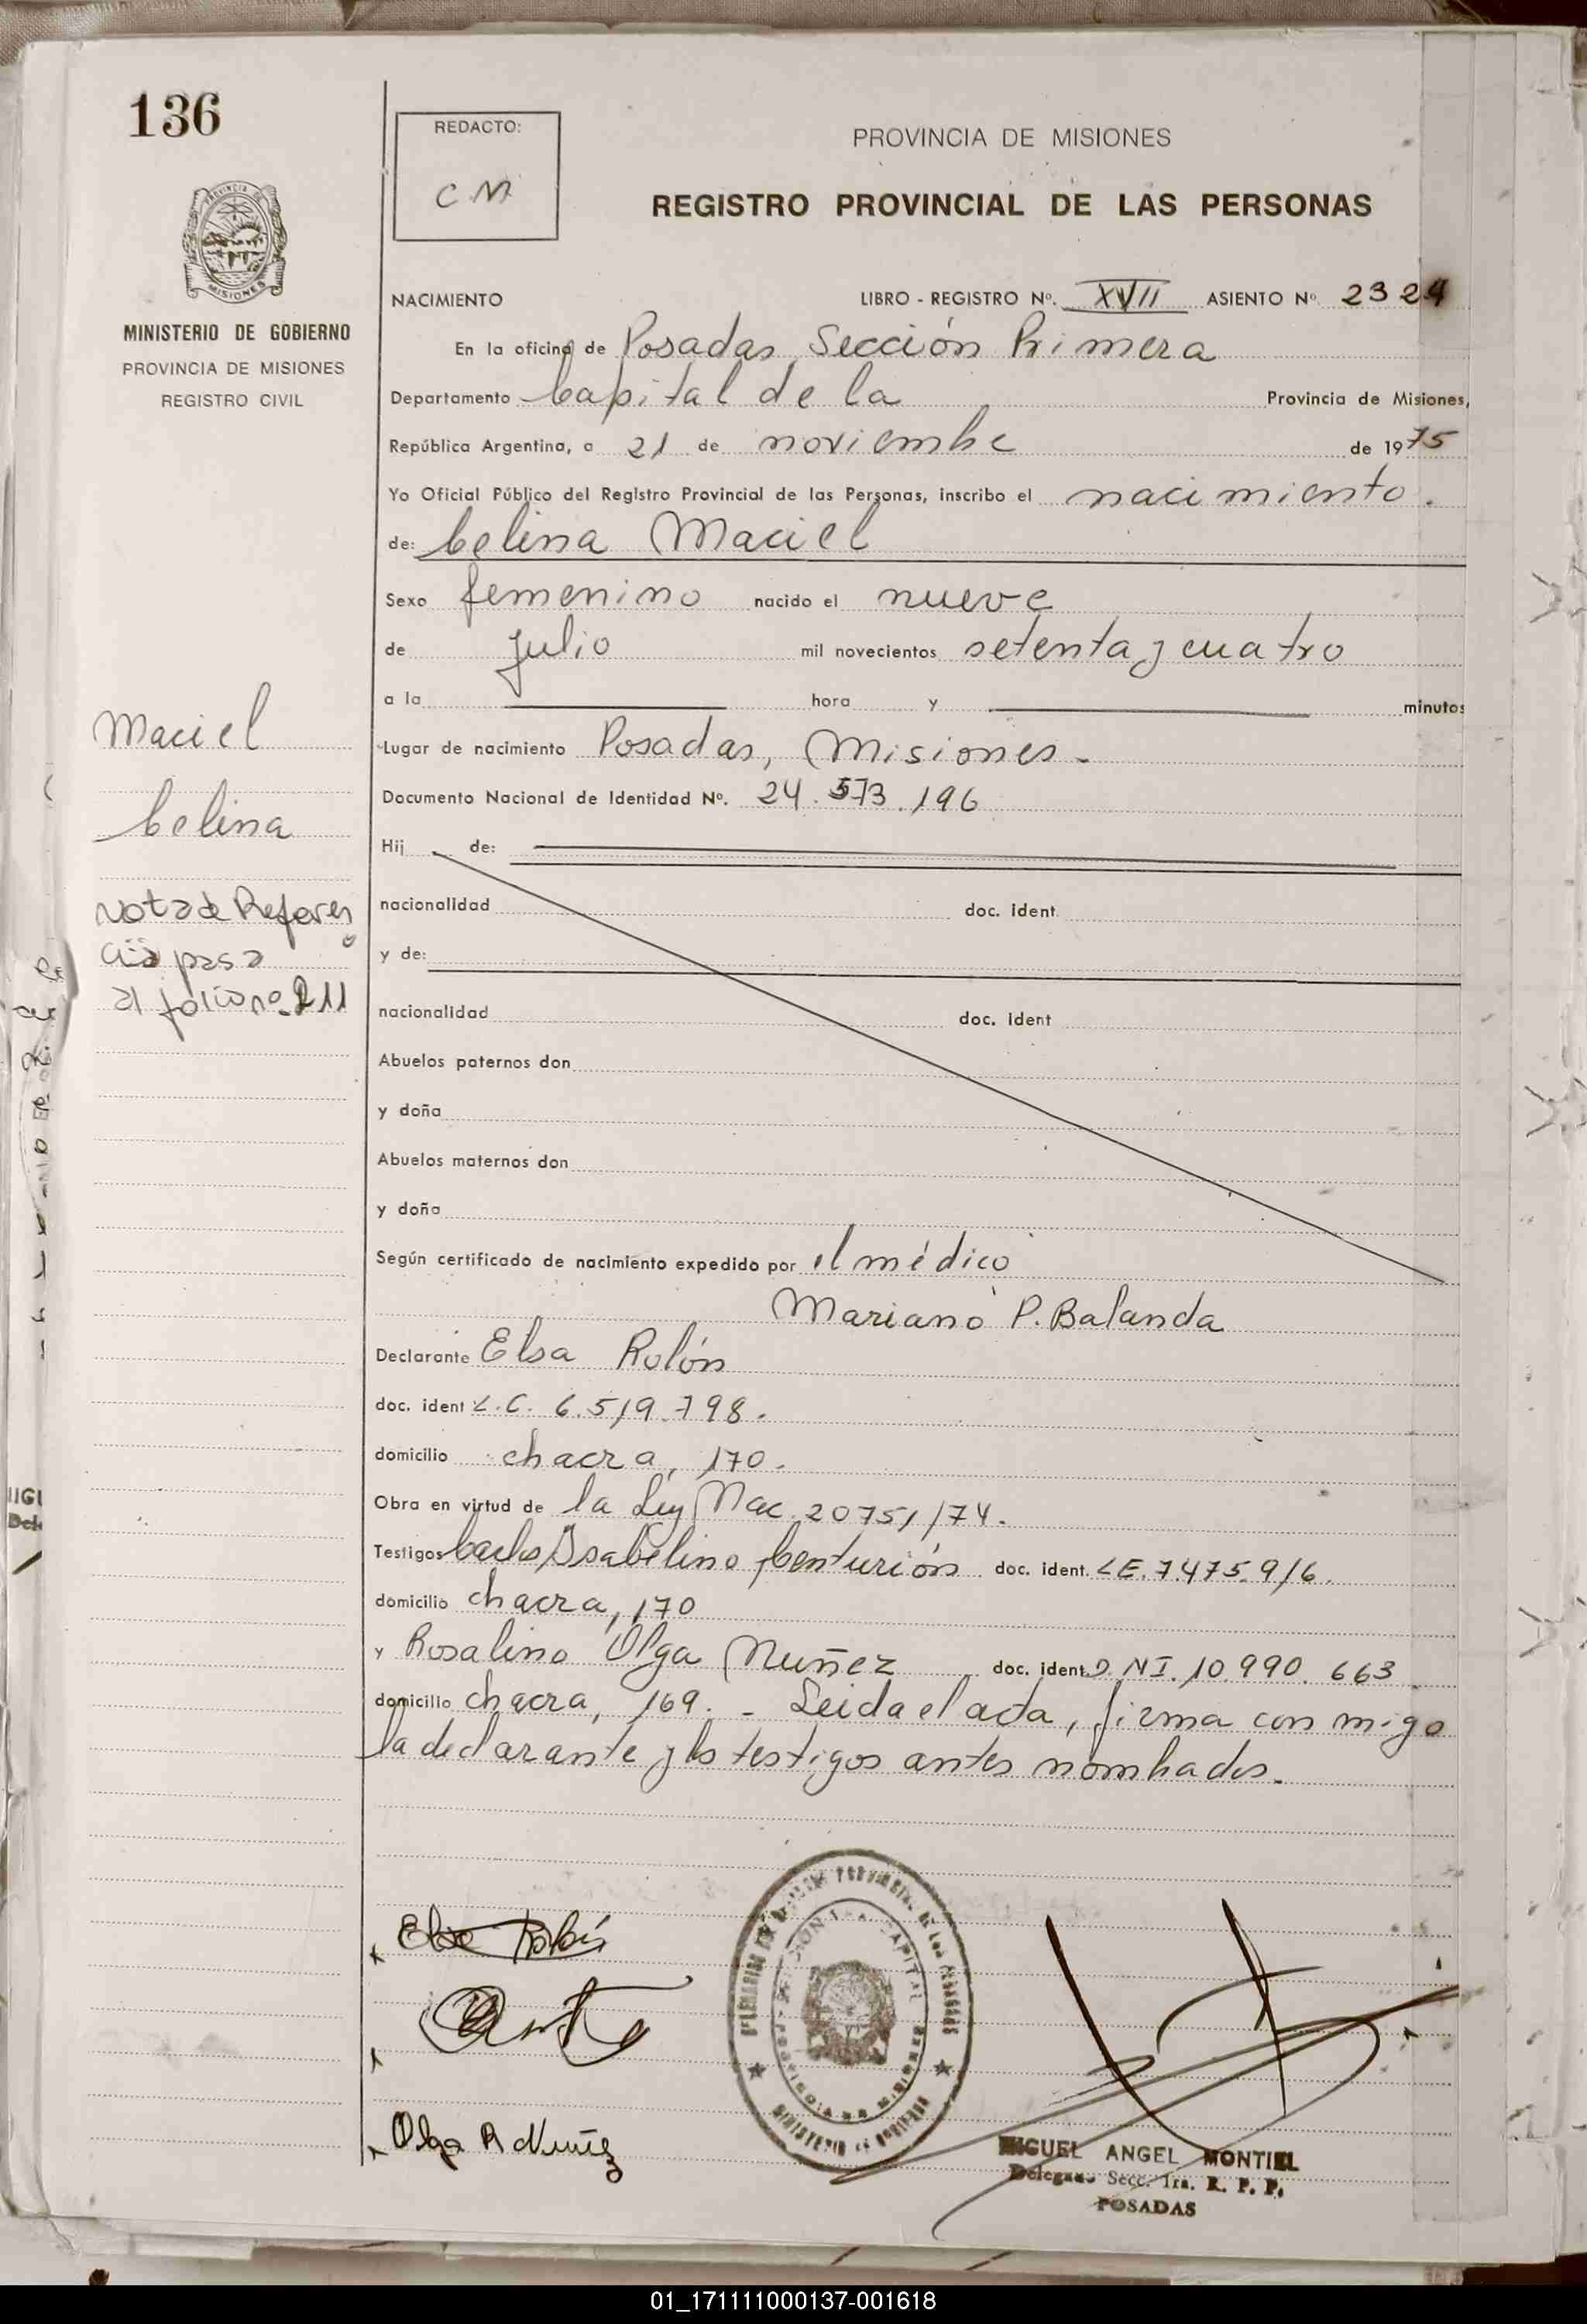 136
REDACTO:
C M
PROVINCIA DE MISIONES
REGISTRO PROVINCIAL DE LAS PERSONAS
MINISTERIO DE GOBIERNO
PROVINCIA DE MISIONES
REGISTRO CIVIL
NACIMIENTO LIBRO - REGISTRO Nº. XVII ASIENTO Nº 2324
En la oficina de Posadas Sección Primera
Departamento Capital de la Provincia de Misiones,
República Argentina, a 21 de noviembre de 1975
Yo Oficial Público del Registro Provincial de las Personas, inscribo el nacimiento.
de: Celina Maciel
Sexo femenino nacido el nueve
de julio mil novecientos setenta y cuatro
a la hora y minutos
Lugar de nacimiento Posadas, Misiones.
Documento Nacional de Identidad Nº. 24.573.196
Hij de:
nacionalidad doc. ident.
y de:
nacionalidad doc. ident
Abuelos paternos don
y doña
Abuelos maternos don
y doña
Según certificado de nacimiento expedido por el médico
Mariano P. Balanda
Declarante Elsa Rolón
doc. ident L.C. 6.519.798.
domicilio chacra, 170.
Obra en virtud de la Ley Nac. 20751/74.
Testigos Carlos Isabelino Centurión doc. ident. LE. 7.475.916.
domicilio chacra, 170
y Rosalina Olga Nuñez doc. ident. D.NI. 10.990.663
domicilio chacra, 169. - Leida el acta, firma con migo
la declarante y los testigos antes nombrados.
Maciel
Celina
Nota de Referen
cia pasa
al folio no. 211
Elsa Rolón
Olga R Nuñez
MIGUEL ANGEL MONTIEL
Delegado Secc. 1ra. R. P. P.
POSADAS
01_171111000137-001618